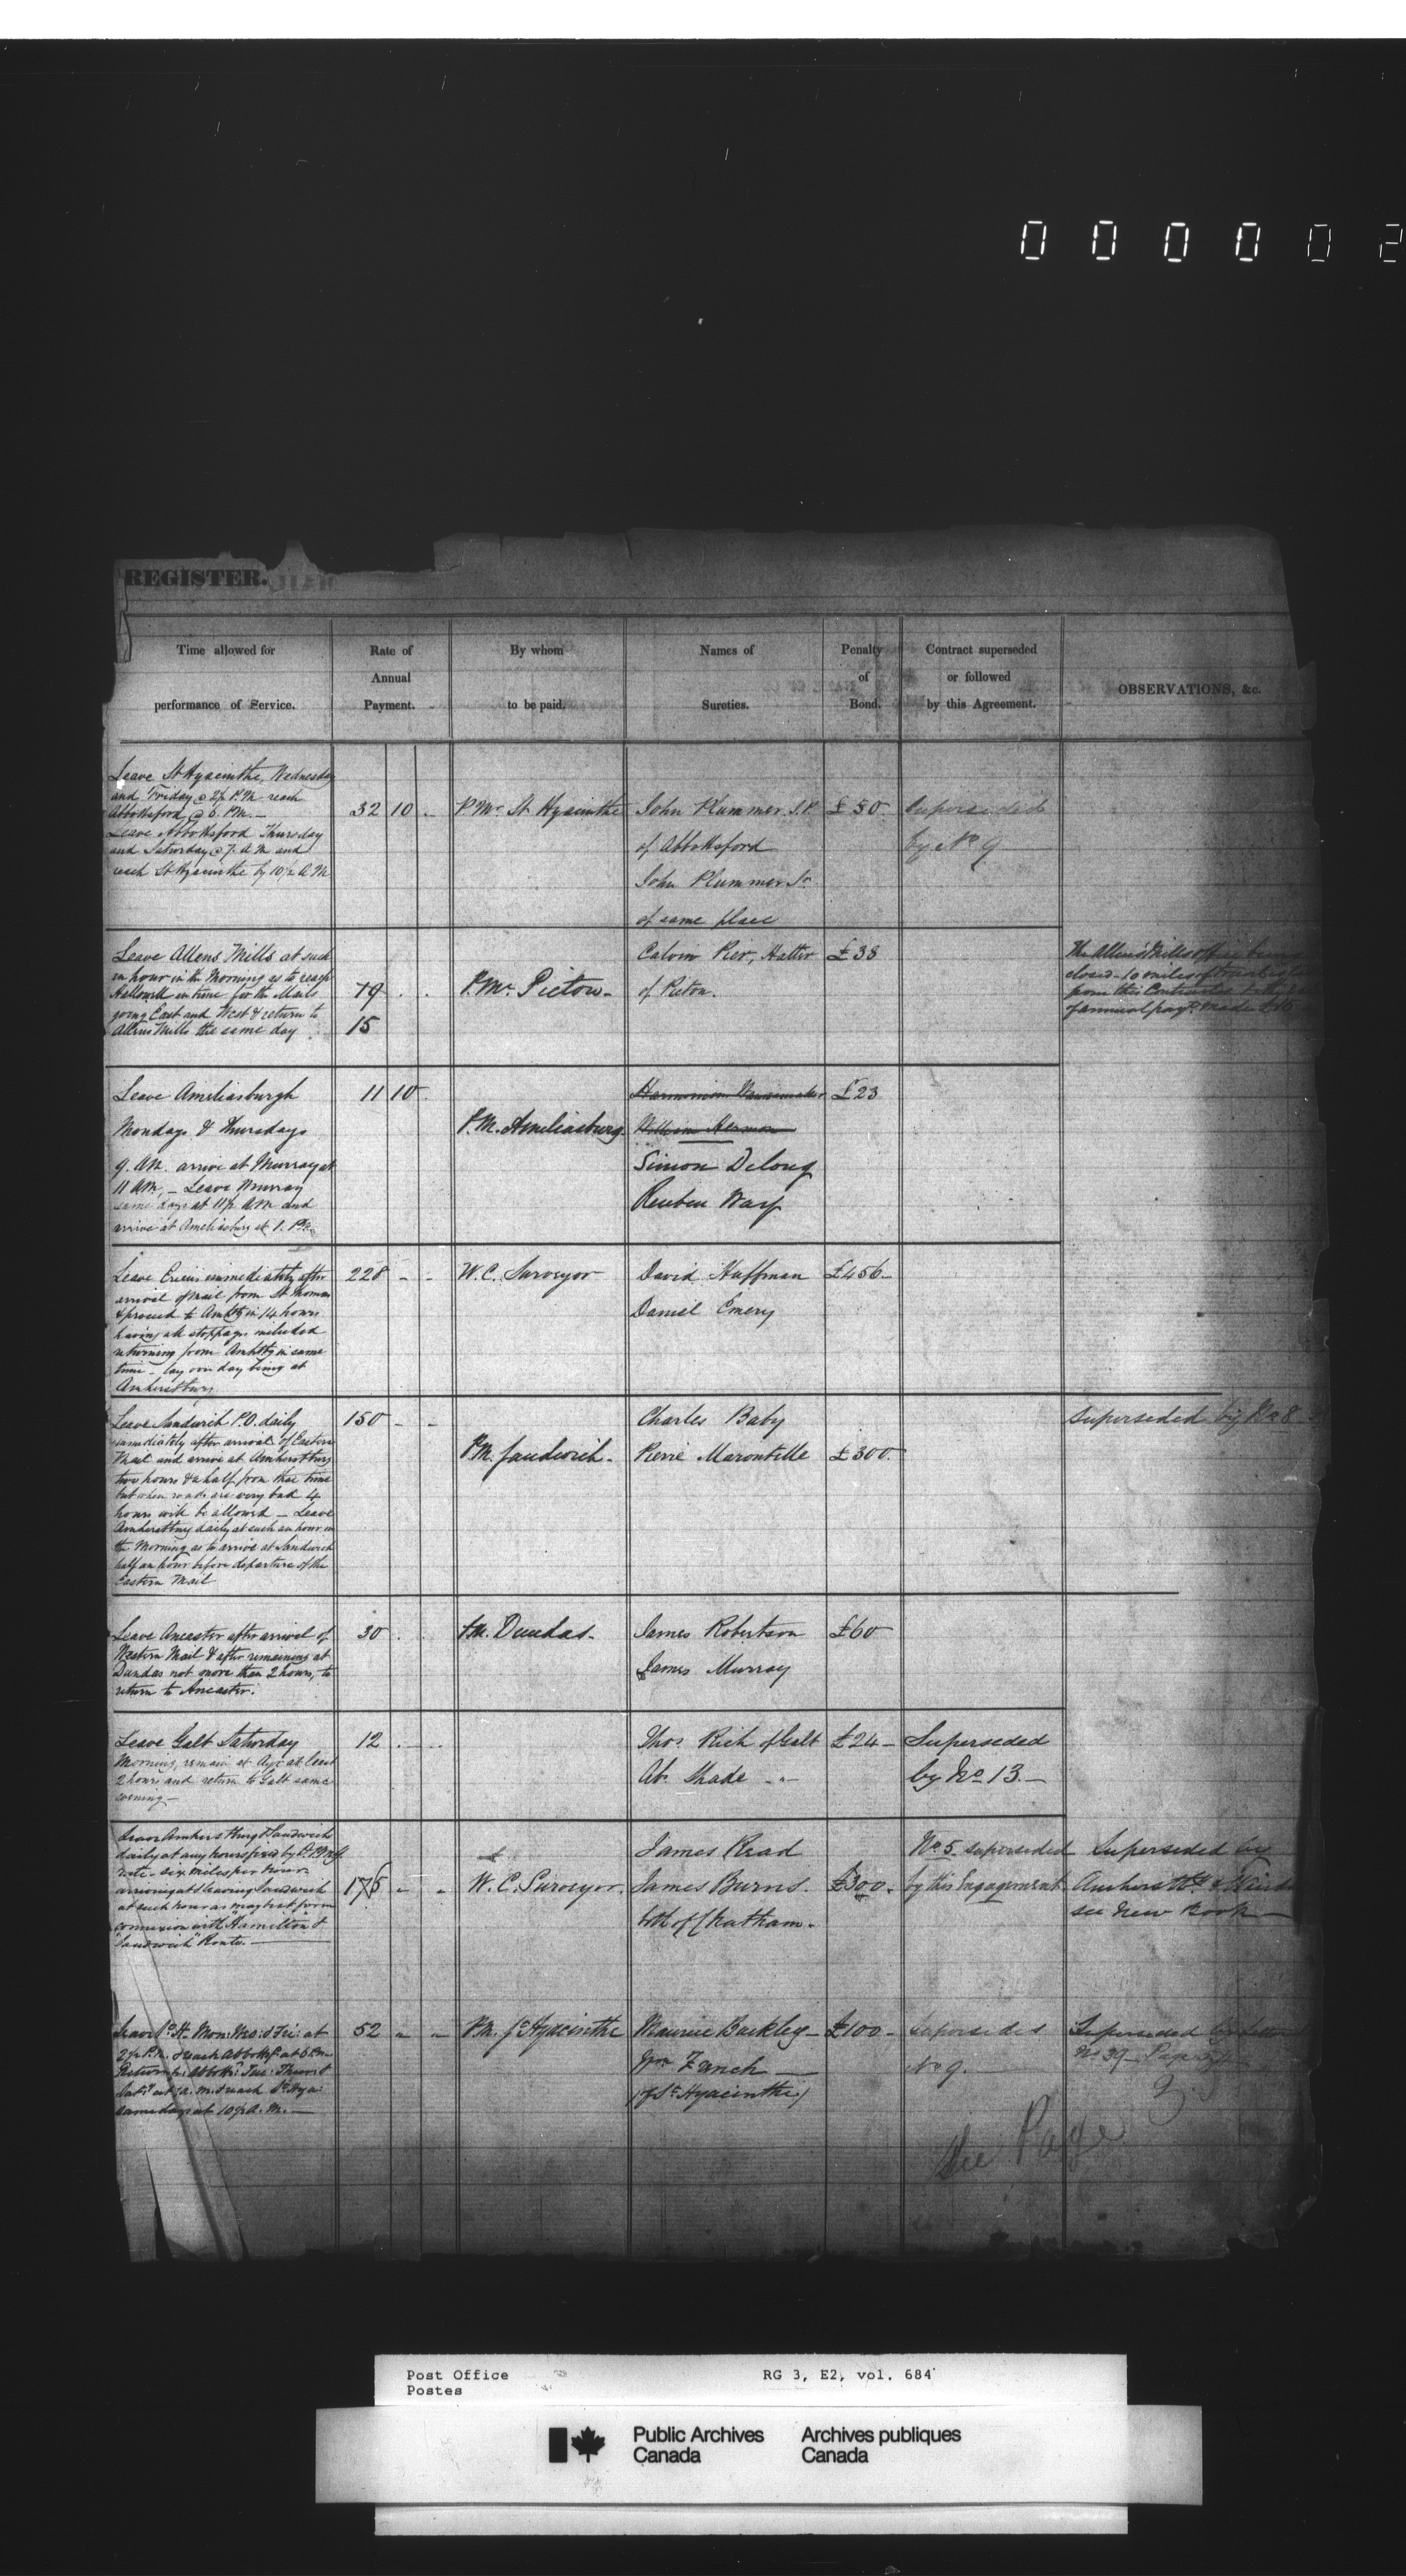 0 0 0 0 0 2
REGISTER.
Time allowed for
performance of Service.
Rate of
Annual
Payment.
By whom
to be paid.
Names of
Sureties.
Penalty
of
Bond.
Contract superseded
or followed
by this Agreement.
OBSERVATIONS, &c.
Leave St Hyacinthe, Wednesday
and Friday @ 2½ P.M. reach
Abbottsford @ 6. P.M. –
Leave Abbottsford Thursday
and Saturday @ 7. A M and
reach St Hyacinthe by 10½ A.M
32 10 -
P.Mr St Hyacinthe
John Plummer J.P.
of Abbottsford
John Plummer Jr
of same place
£ 50.
Superseded
by No 9
Leave Allens Mills at such
an hour in the Morning as to reach
Hallowell in time for the Mails
going East and West & return to
Allens Mills the same day
19 . .
15
P.Mr Picton -
Calvin Pier, Hatter
of Picton.
£38
The Allens Mills office being
closed - 10 miles of
from this Contract
of annual payt made £15
Leave Ameliasburgh
Mondays & Thursdays
9. AM. arrive at Murray at
11 AM, – Leave Murray
same days at 11½ A.M and
arrive at Ameliasburg at 1. PM.
11 10 .
P.M. Ameliasburg.
Simon Delong
Reuben Way
£23
Leave immediately after
arrival of mail from St Thomas
& proceed to Ambtg in 14 hours
having all stoppages included
returning from Ambtg in same
time - lay over day being at
Amherstburg
228 - -
W. C. Surveyor
David Huffman
Daniel Emery
£456 -
Leave Sandwich P.O. daily
immediately after arrival of Eastern
Mail and arrive at Amherstburg
two hours & a half from that time
but when roads are very bad 4
hours will be allowed – Leave
Amherstburg daily at such an hour in
the Morning as to arrive at Sandwich
half an hour before departure of the
Eastern Mail
150 - -
P.M. Sandwich -
Charles Baby
Pierre Marontelle
£300.
Superseded by No 8
Leave Ancaster after arrival of
Western Mail & after remaining at
Dundas not more than 2 hours, to
return to Ancaster.
30 . .
P.M. Dundas -
James Robertson
James Murray
£60
Leave Galt Saturday
Morning, remain at Ayr at least
2 hours and return to Galt same
evening –
12 . -
Thos Rich of Galt
Ab. Shade - "
£24 -
Superseded
by No 13. –
Leave Amherstburg & Sandwich
daily at any hours fixed by
rate - six miles per hour
arriving at & leaving Sandwich
at such hour as may best form
connexion with "Hamilton &
Sandwich" Route. –
175 - -
W. C. Surveyor.
James Read
James Burns.
both of Chatham -
£300 -
No 5 superseded
by this Engagement
Superseded by
Amherstbg &
see New Book –
Leave St H. Mon: Wed: & Fri: at
2½ P.M. & reach Abbottsfd at 6 P.M.
Return fr: Abbotts: Tue: Thurs &
Sat: at 7 a. m. & reach St Hya:
same days at 10½ A. M. –
52 - -
P.M. St Hyacinthe
Maurice Buckley -
Wm French –
(of St Hyacinthe)
£100 -
Supersedes
No 9. –
Superseded by
No 39 – Page
See Page 3
Post Office
Postes
RG 3, E2, vol. 684
Public Archives
Canada
Archives publiques
Canada